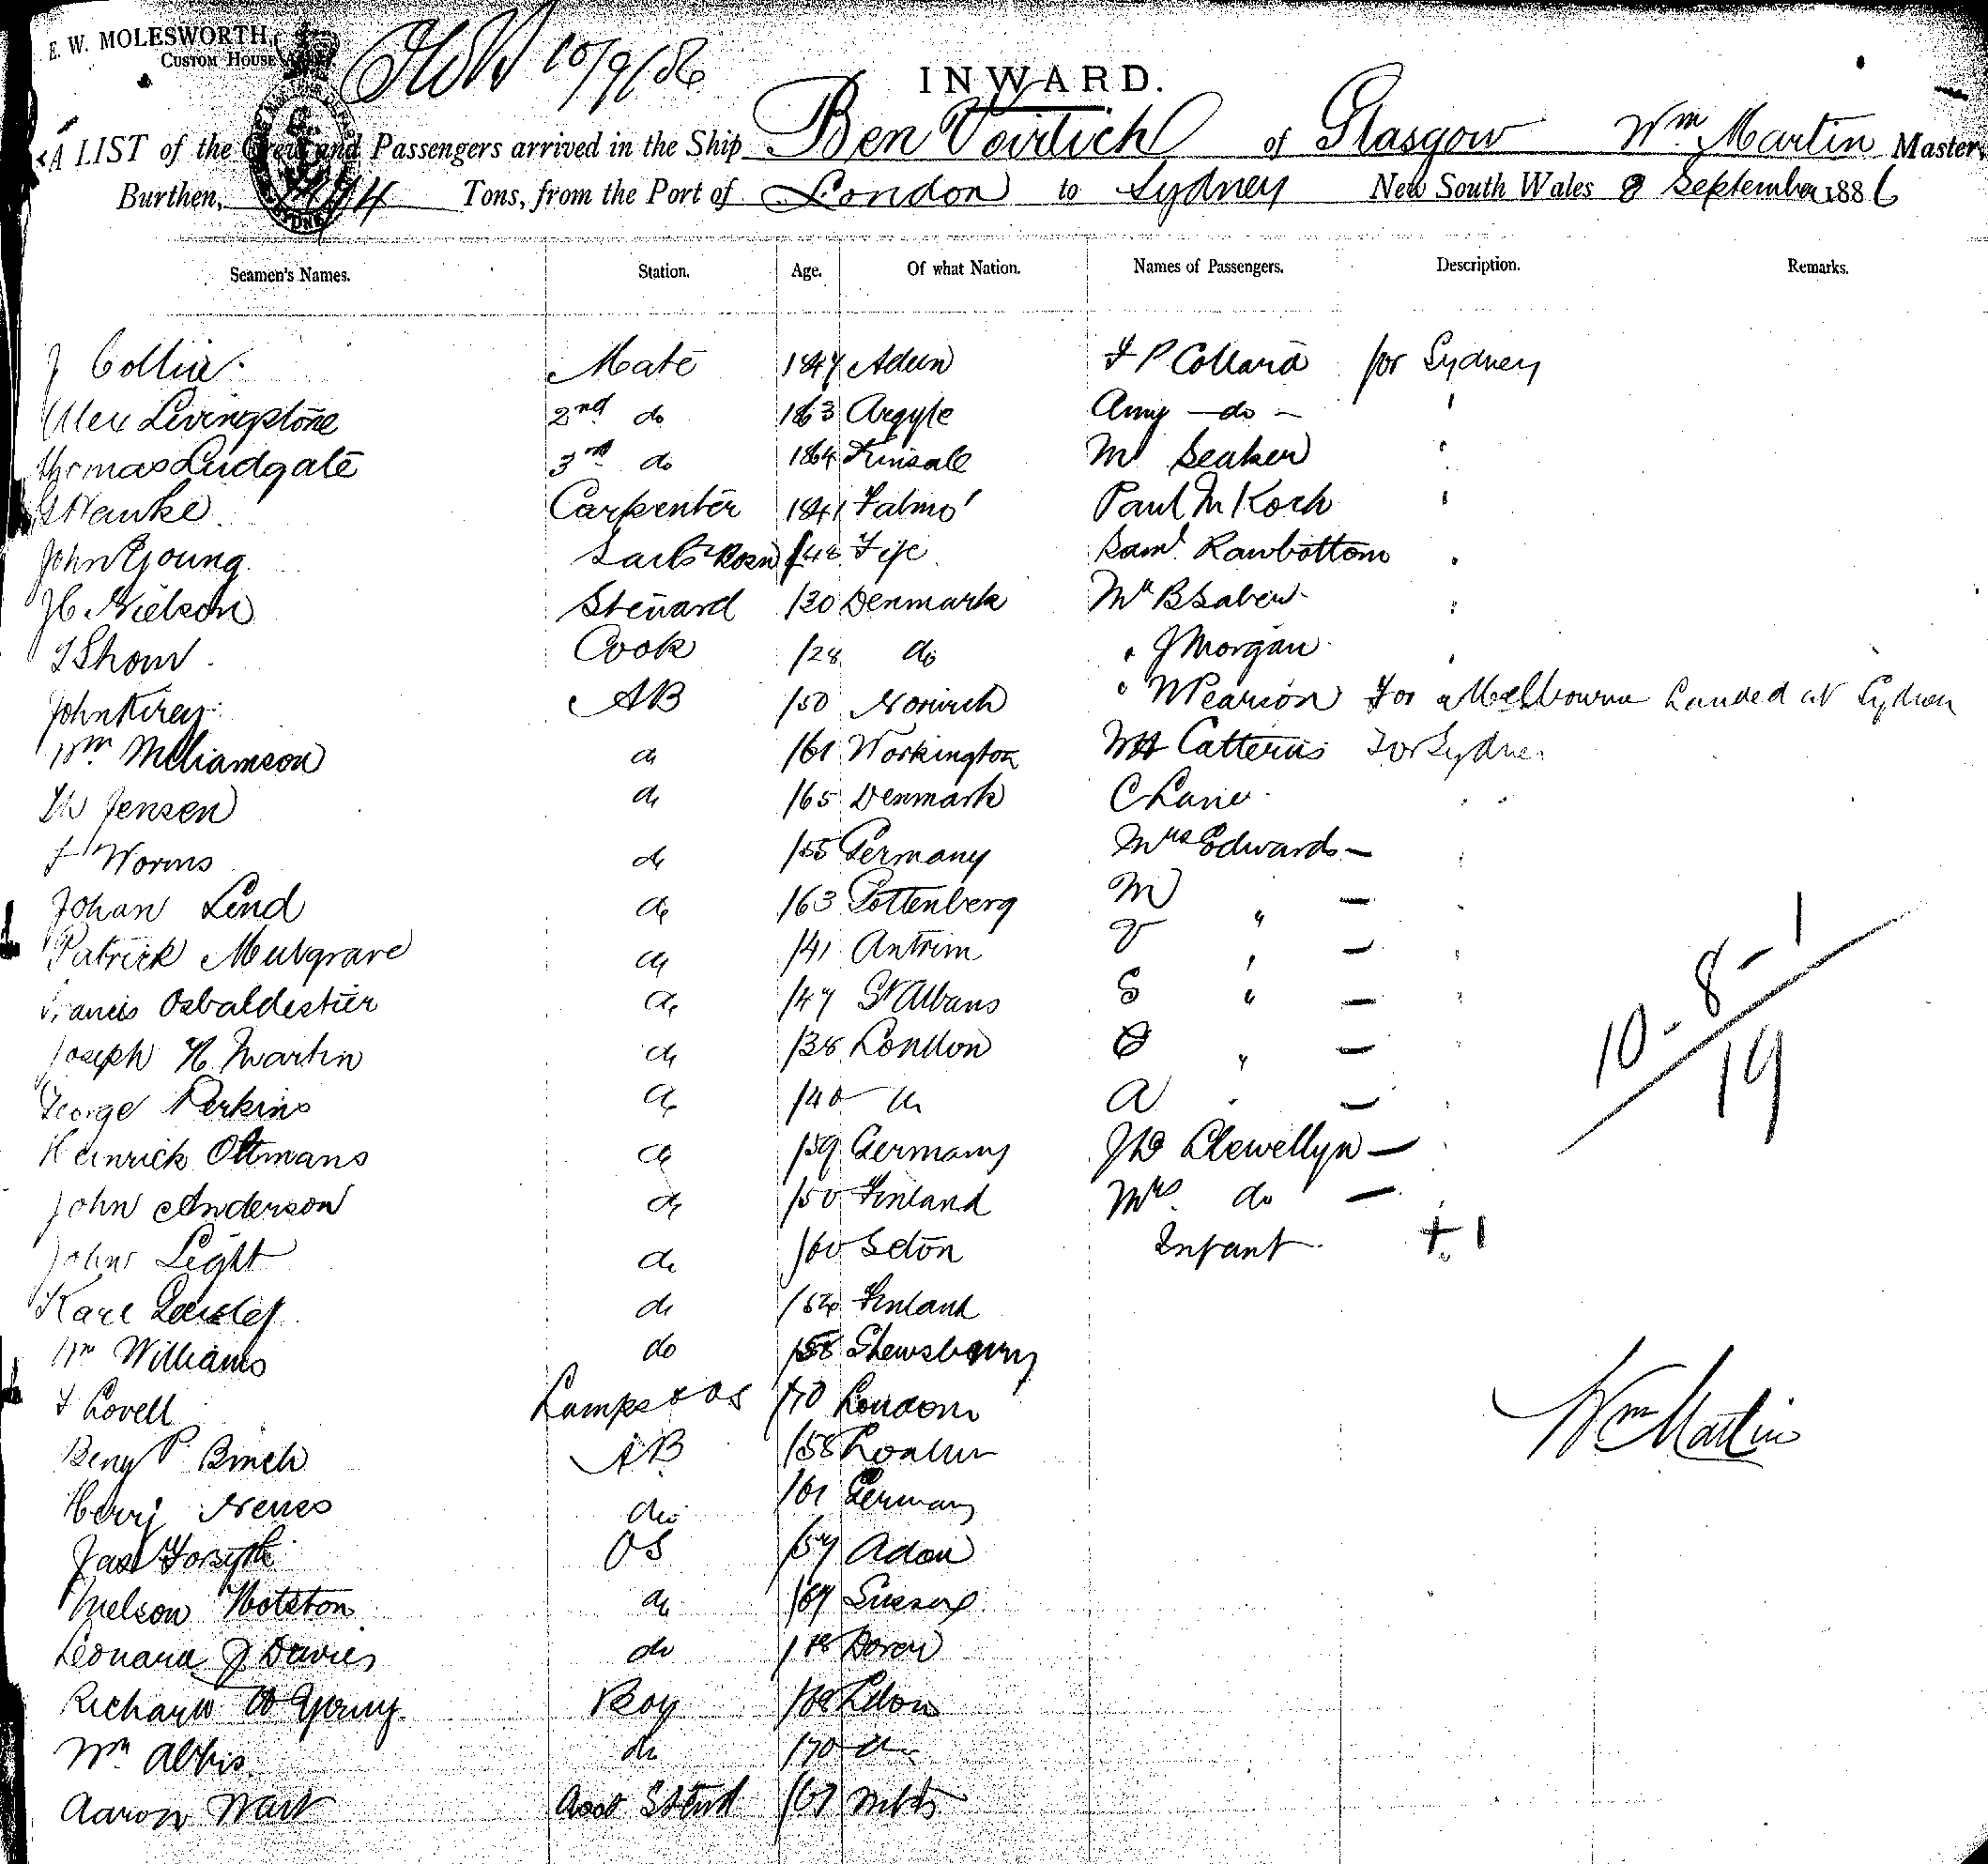 E. W. MOLESWORTH,
CUSTOM HOUSE
10/9/86
INWARD.
A LIST of the Crew and Passengers arrived in the Ship Ben Voirlich of Glasgow Wm Martin Master,
Burthen, Tons, from the Port of London to Sydney New South Wales 8 September 1886
Seamen's Names. Station. Age. Of what Nation. Names of Passengers. Description. Remarks.
J Collie Mate 1847 Adeen F P Collard for Sydney
Alex Livingstone 2nd do 1863 Argyle Amy - do - "
Thomas Ludgate 3rd do 1864 Kinsale M Seaker "
Hawke Carpenter 1841 Falmo' Paul M Koch "
John Young Sailr & Bosn /48 Fife Saml Rawbottom "
Nielson Steward /30 Denmark Mr B Saber "
Cook /28 do " J Morgan "
John Kirey AB /50 Norwich " W Pearson For Melbourne Landed at Sydney
Wm Williamson do /61 Workington WH Catterns For Sydney
Th Jensen do /65 Denmark C Lane " "
F Worms do /55 Germany Mrs Edwards - "
Johan Lind do /63 Gottenberg M " - "
Patrick Mulgrave do /41 Antrim V " - "
Francis Osbaldestier do /47 St Albans S " - "
Joseph H Martin do /38 London " - "
George Perkins do /40 do A " - "
Heinrich Oltmans do /59 Germany Llewellyn - "
John Anderson do /50 Finland Mrs do - "
John Light do /60 Infant + 1
Karl do Finland
Wm Williams do /58 Shewsbury
F Lovell Lamps & OS /70 London
Benj P. Binch AB /58 London
Henry do /61 Germany
Jas Forsyth OS /67 Adeen
Nelson do /67 Sussex
Leonard J Davies do Dover
Richard W Young Boy /68 Ldon
Wm Abbis do /70 do
Aaron Wart Asst Stewd /67
10 - 8 - 1
19
Wm Martin